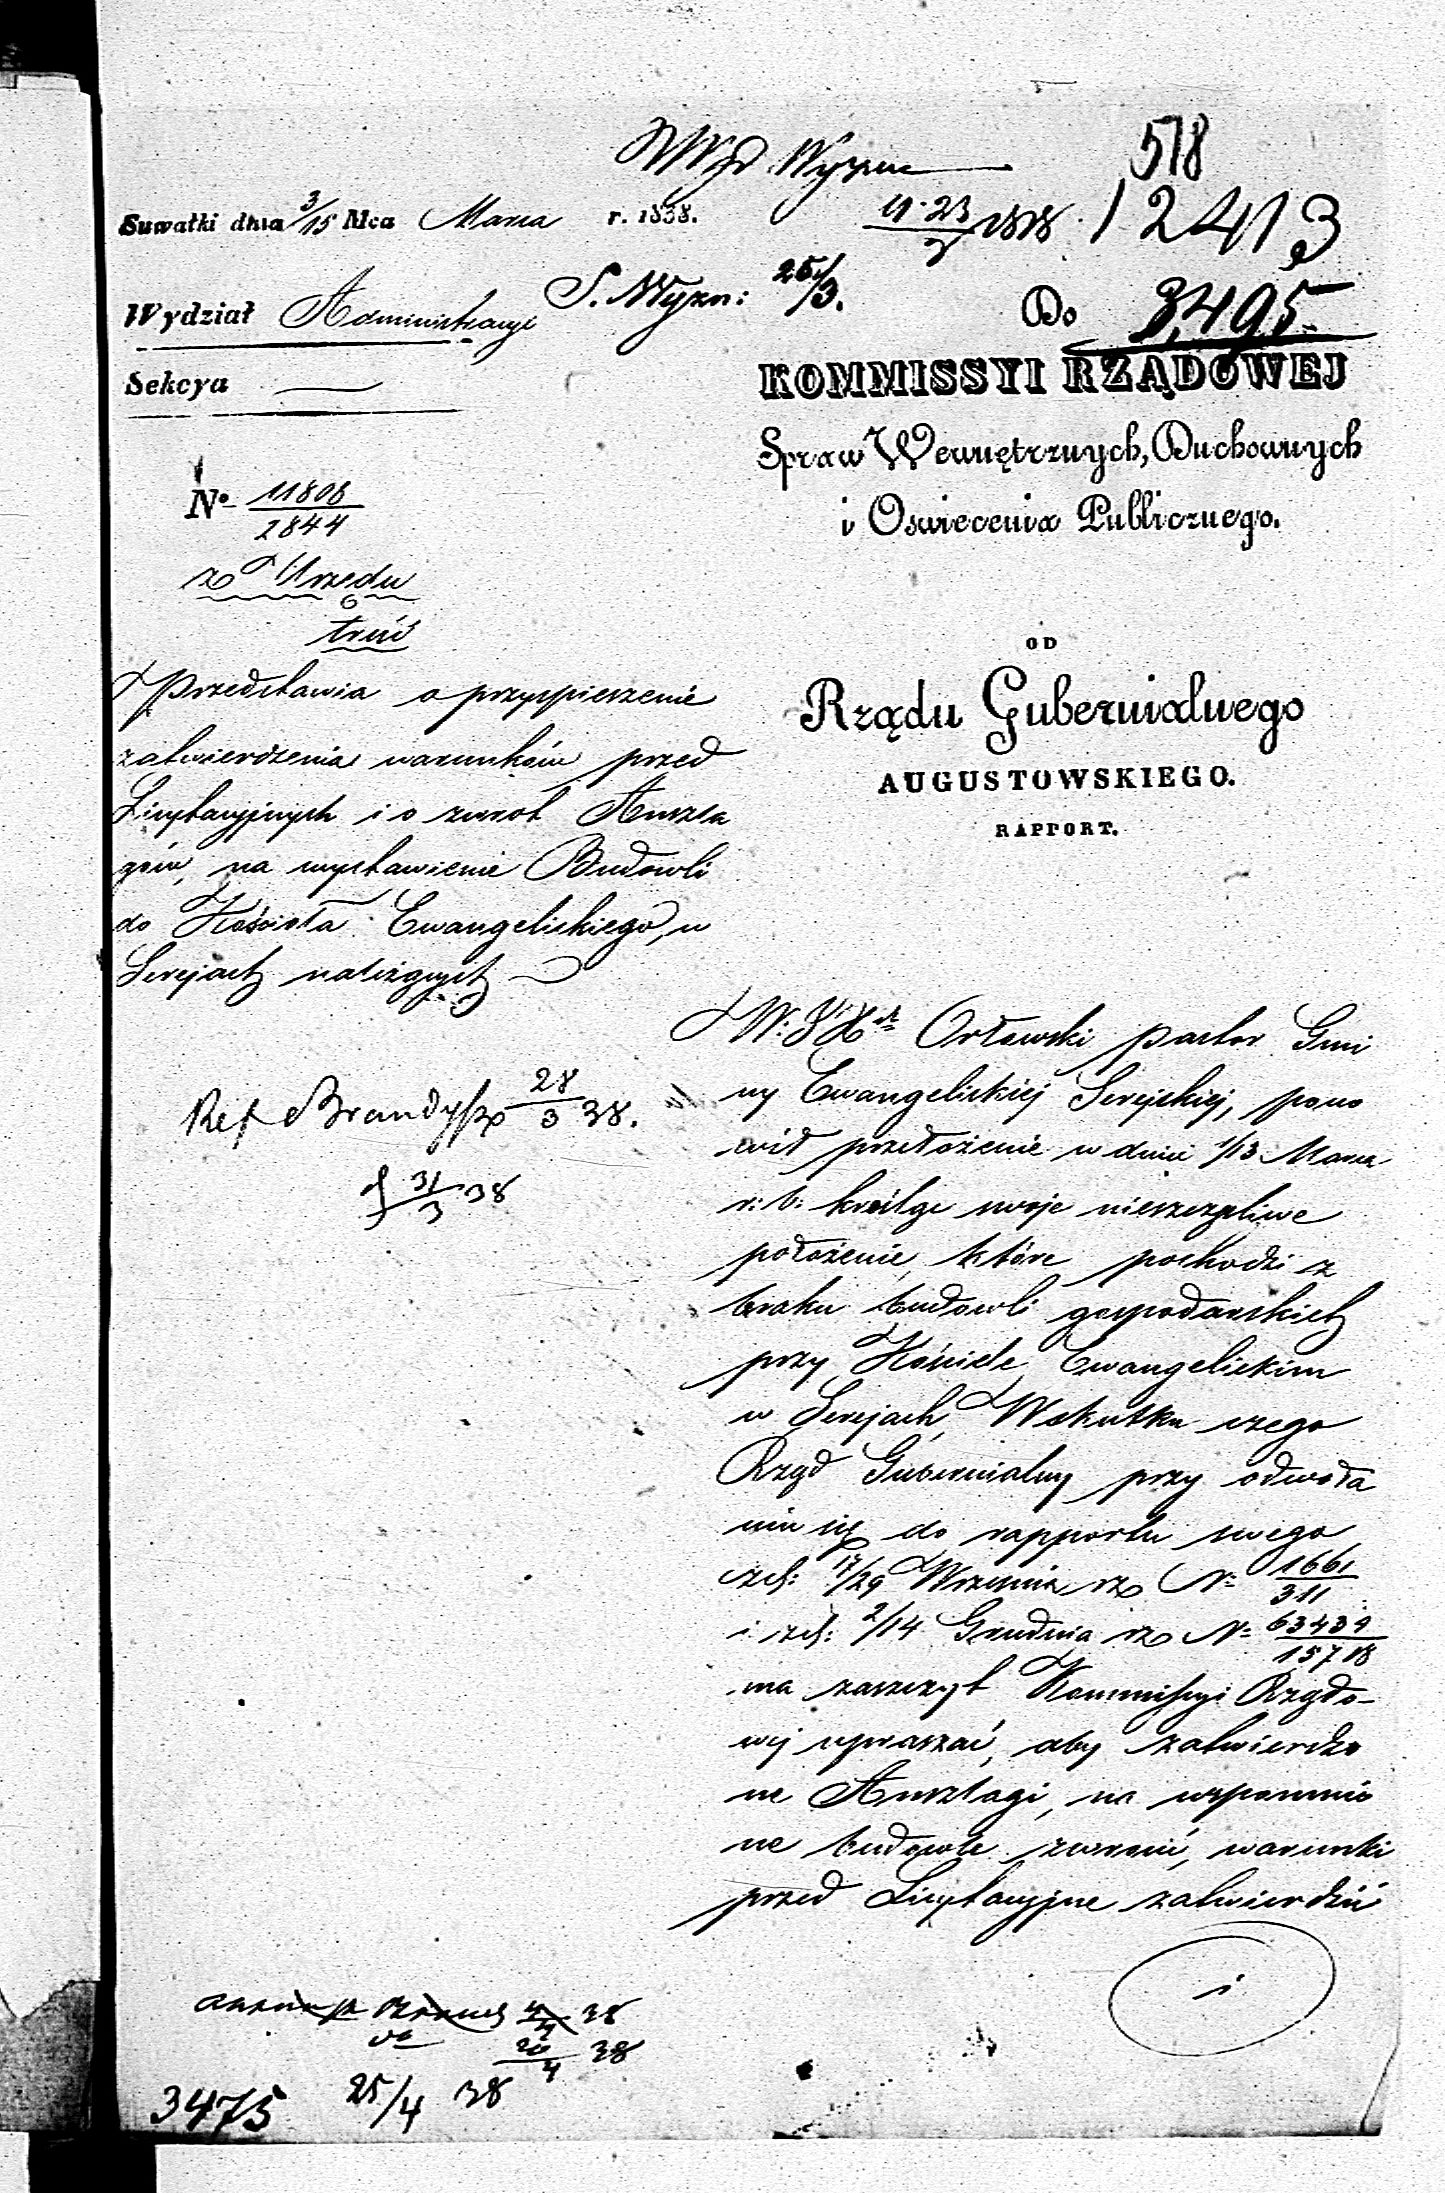 518
WRząd Wyzna
Suwałki dnia 3/15 Mca Marca r. 1838.
11·23/3 1838.
12413
S. Wyzn: 25/3.
Wydział Administracyi
Do 3,495.
Sekcya
KOMMISSYI RZĄDOWEJ
Spraw Wewnętrznych, Duchownych
i Oswiecenia Publicznego.
No 11808/2844
z Urzędu
treść
OD
Rządu Gubernialnego
AUGUSTOWSKIEGO.
RAPPORT.
Przedstawia o przyspieszenie
zatwierdzenia warunków przed
Licytacyjnych i o zwrot Anszla
gów, na wystawienie Budowli
do Kościoła Ewangelickiego, w
Serejach należących
Ref Brandysz 28/3 38.
31/3 38
Orłowski pastor Gmi
ny Ewangelickiej Serejskiej, pono
wił przełożenie w dniu 1/13 Marca
r: b: kreśląc swoje nieszczęśliwe
położenie, które pochodzi z
braku budowli gospodarskich
przy Kościele Ewangelickim
w Serejach, Wskutku czego
Rząd Gubernialny przy odwoła
niu się do rapportu swego
z d: 17/29 Września rz N: 1661/311
i z d: 2/14 Grudnia rz N: 63434/15718
ma zaszczyt Kommissyi Rządo-
wej upraszać, aby zatwierdzo
ne Anszlagi, na wspomnio
ne budowle zwrócić, warunki
przed Licytacyjne zatwierdzić
i
38
20/4 38
3475 25/4 38